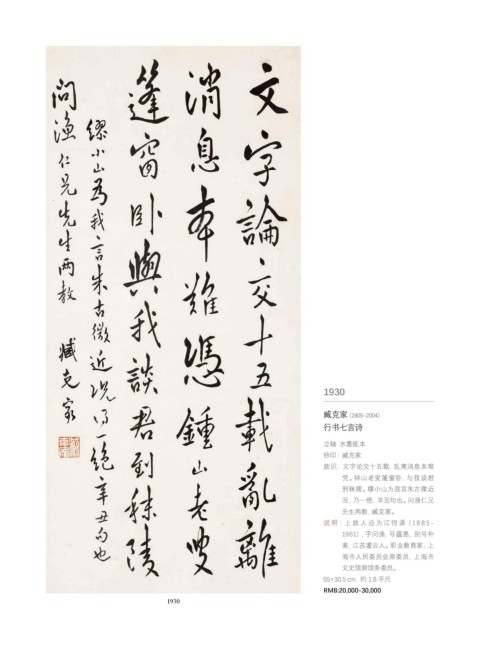 文字論交十五載亂離
消息本難憑鍾山老叟
篷窗卧與我談君到秣陵
繆小山為我言朱古微近況得一絕辛丑句也
問漁仁兄先生兩教 臧克家
1930
1930
臧克家 (1905-2004)
行书七言诗
立轴 水墨纸本
钤印：臧克家
款识：文字论交十五载，乱离消息本难
凭。钟山老叟篷窗卧，与我谈君
到秣陵。缪小山为我言朱古微近
况，乃一绝，辛丑句也。问渔仁兄
先生两教，臧克家。
说明：上款人应为江恒源（1885-
1961），字问渔，号蕴愚，别号补
斋，江苏灌云人。职业教育家，上
海市人民委员会席委员，上海市
文史馆原馆务委员。
65×30.5 cm 约 1.8 平尺
RMB:20,000-30,000